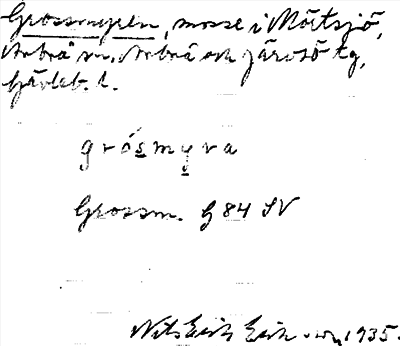 Grossmyren, mosse i Mörtsjö,
Arbrå sn, Arbrå och Järvsö tg,
Gävleb. l.
grósmyra
Grossm. G 84 SV
Nils Erik 1935.